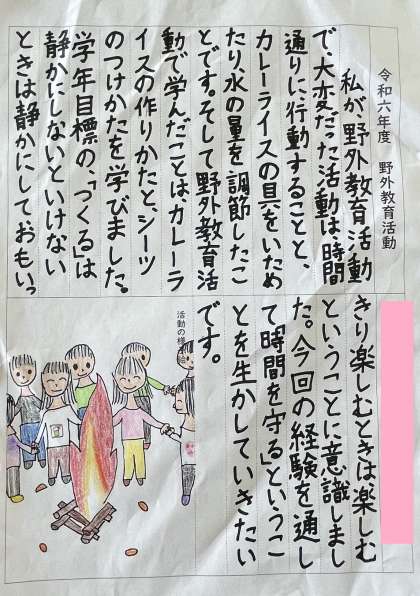 令和六年度　野外教育活動
私が、野外教育活動
で、大変だった活動は、時間
通りに行動することと、
カレーライスの具をいため
たり水の量を調節したこ
とです。そして野外教育活
動で学んだことは、カレーラ
イスの作りかたと、シーツ
のつけかたを学びました。
学年目標の、「つくる」は
静かにしないといけない
ときは静かにしておもいっ
きり楽しむときは楽しむ
ということに意識しまし
た。今回の経験を通し
て「時間を守る」というこ
とを生かしていきたい
です。